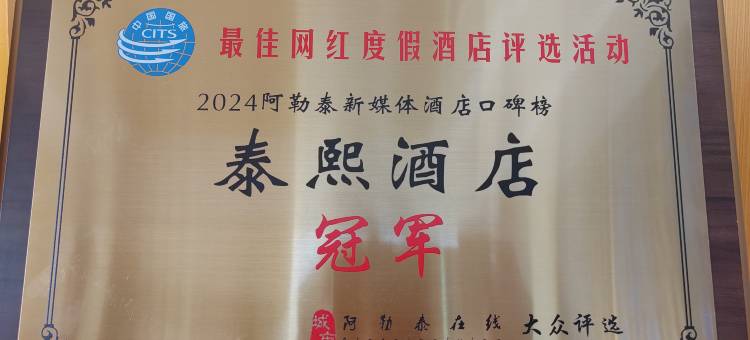 中国国旅
CITS
最佳网红度假酒店评选活动
2024阿勒泰新媒体酒店口碑榜
泰熙酒店
冠军
阿勒泰在线 大众评选